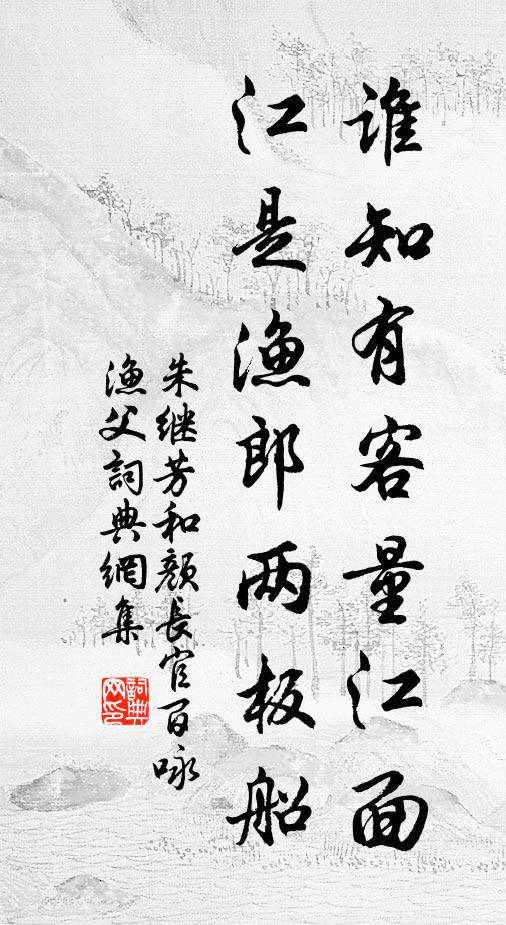 谁知有客量江面
江是渔郎两板船
朱继芳和颜长官百咏
渔父詞典網集
詞典
网印